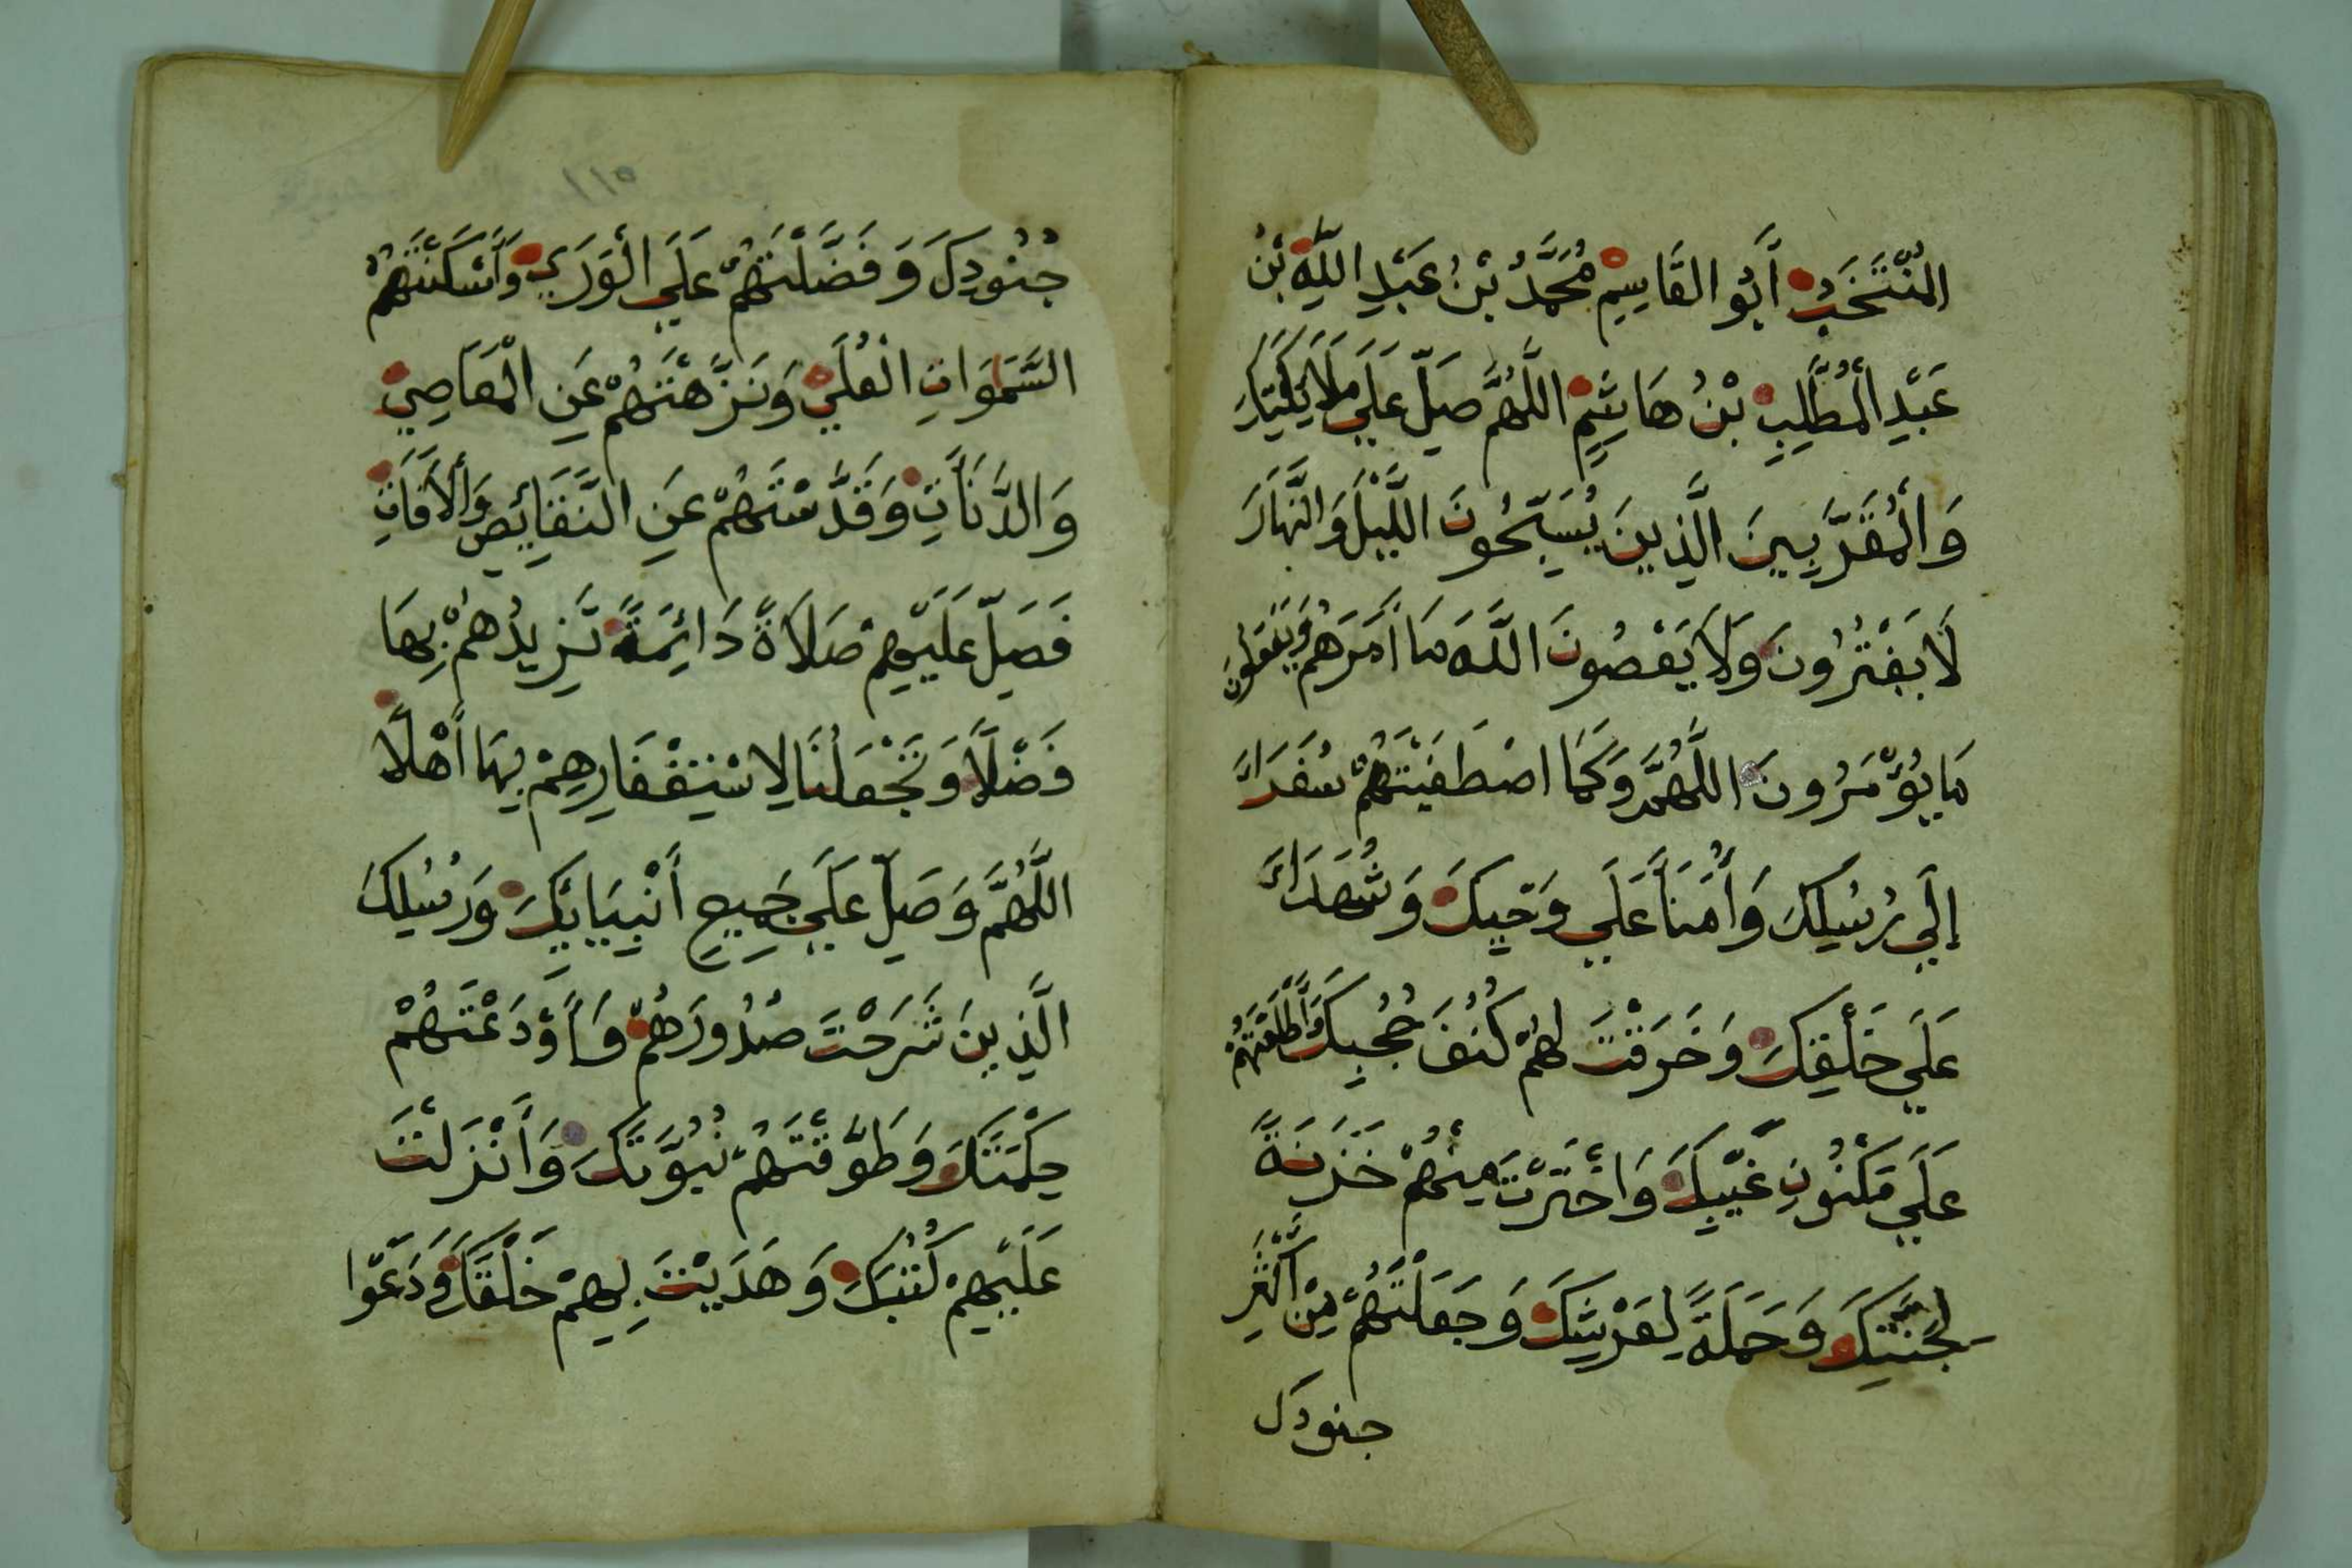 الْمُنْتَخَبُ أَبُو الْقَاسِمِ مُحَمَّدُ بْنُ عَبْدِ اللَّهِ بْنُ
عَبْدِ الْمُطَّلِبِ بْنُ هَاشِمٍ اللَّهُمَّ صَلِّ عَلَى مَلَائِكَتِكَ
وَالْمُقَرَّبِينَ الَّذِينَ يُسَبِّحُونَ اللَّيْلَ وَالنَّهَارَ
لَا يَفْتُرُونَ وَلَا يَعْصُونَ اللَّهَ مَا أَمَرَهُمْ وَيَفْعَلُونَ
مَا يُؤْمَرُونَ اللَّهُمَّ وَكَمَا اصْطَفَيْتَهُمْ سُفَرَاءَ
إِلَي رُسُلِكَ وَأُمَنَآءَ عَلَي وَحْيِكَ وَشُهَدَاءَ
عَلَي خَلْقِكَ وَخَرَقْتَ لَهُمْ كُنُفَ حُجُبِكَ وَأَطْلَعْتَهُمْ
عَلَي مَكْنُونِ غَيْبِكَ وَاخْتَرْتَ مِنْهُمْ خَزَنَةً
لِجَنَّتِكَ وَحَمَلَةً لِعَرْشِكَ وَجَعَلْتَهُمْ مِنْ أَكْثَرِ
جنودك
١١٥
جُنُودِكَ وَفَضَّلْتَهُمْ عَلَي الْوَرَي وَأَسْكَنْتَهُمُ
السَّمَوَاتِ الْعُلَي وَنَزَّهْتَهُمْ عَنِ الْمَعَاصِي
وَالدَّنَآتِ وَقَدَّسْتَهُمْ عَنِ النَّقَائِصِ وَالْآفَاتِ
فَصَلِّ عَلَيْهِمْ صَلَاةً دَائِمَةً تَزِيدُهُمْ بِهَا
فَضْلًا وَتَجْعَلُنَا لِاسْتِغْفَارِهِمْ بِهَا أَهْلًا
اللَّهُمَّ وَصَلِّ عَلَي جَمِيعِ أَنْبِيَايِكَ وَرُسُلِكَ
الَّذِينَ شَرَحْتَ صُدُورَهُمْ وَأَوْدَعْتَهُمْ
حِكْمَتَكَ وَطَوَّقْتَهُمْ نُبُوَّتَكَ وَأَنْزَلْتَ
عَلَيْهِمْ كُتُبَكَ وَهَدَيْتَ بِهِمْ خَلْقَكَ وَدَعَوْا